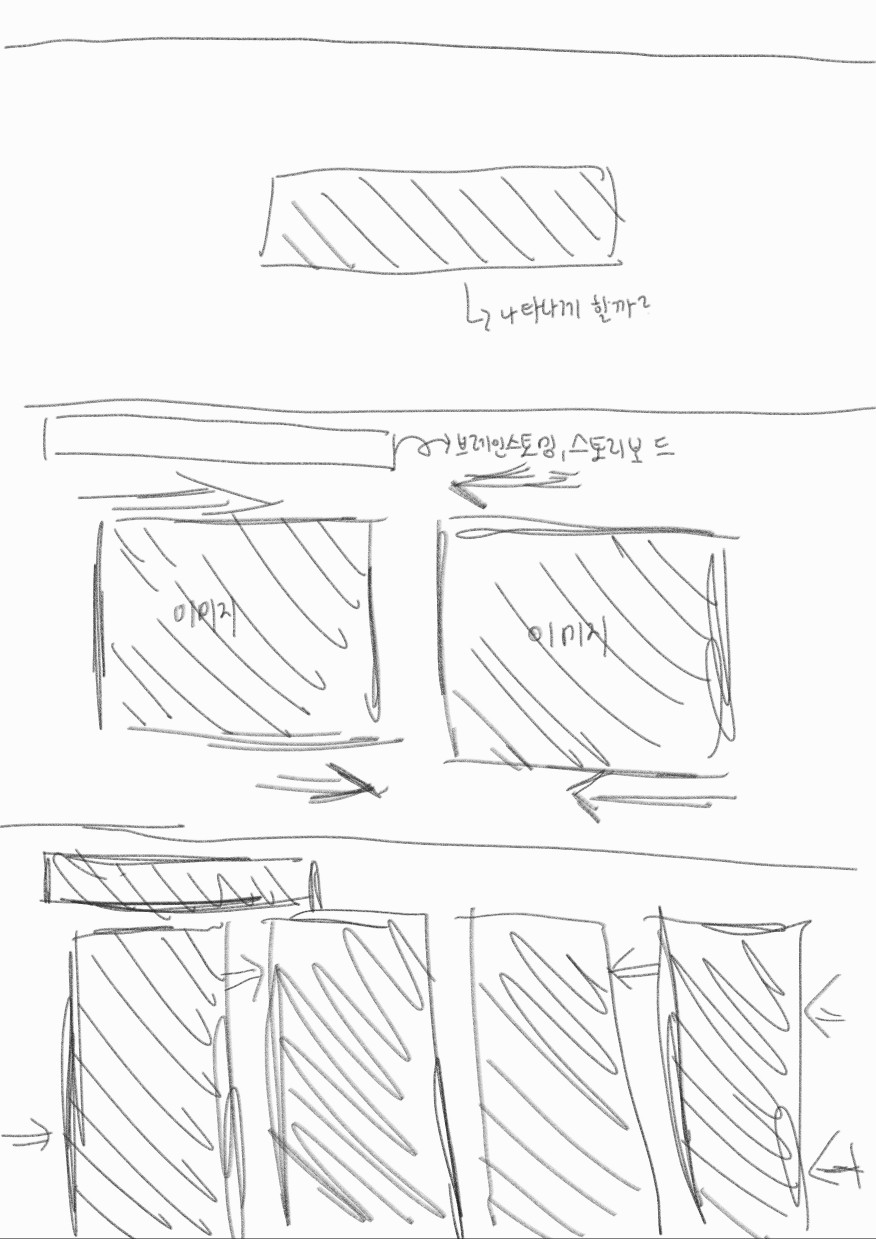 나타나게 할까?
브레인스토밍, 스토리보드
이미지
이미지